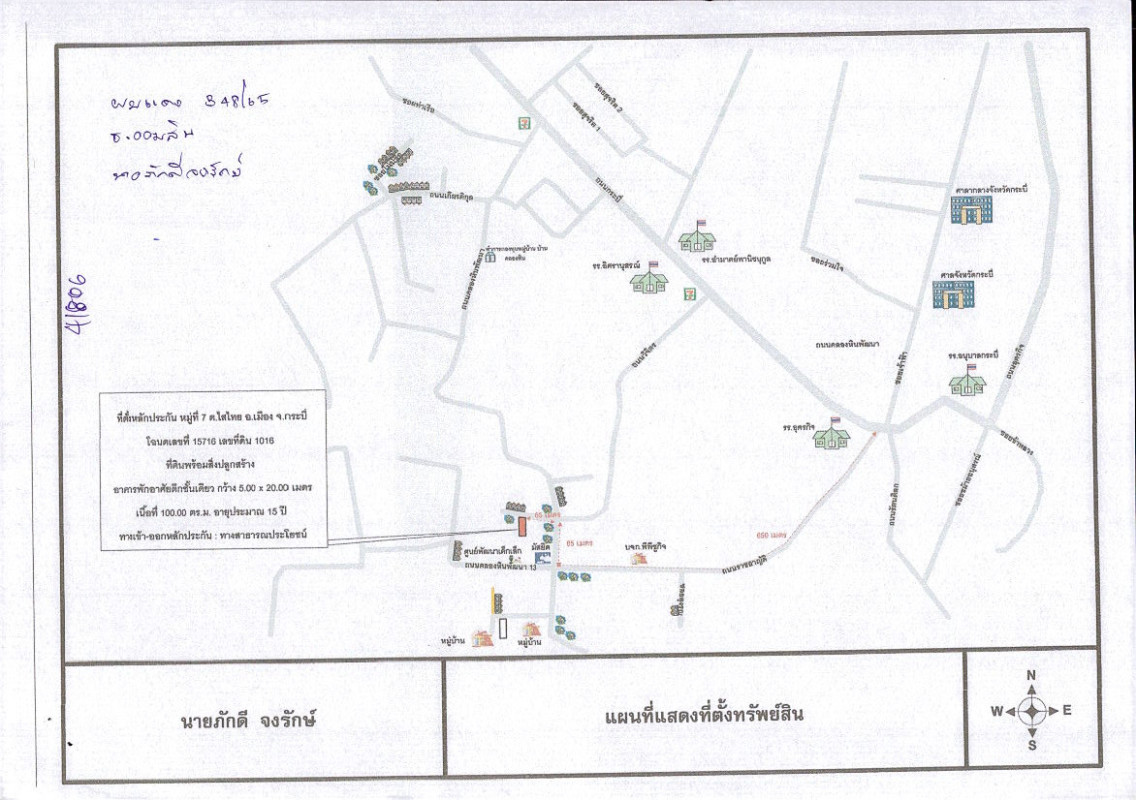 ผบแดง 348/65
ธ.ออมสิน
นายภักดี จงรักษ์
41806
ซอยท่าเรือ
ซอยสุจริต 2
ซอยสุจริต 1
ถนนเกียรติกุล
ถนนกระบี่
ศาลากลางจังหวัดกระบี่
ที่ทำการกองทุนหมู่บ้าน บ้าน
คลองหิน
ถนนคลองหินพัฒนา
รร.อำมาตย์พานิชนุกูล
รร.อิศรานุสรณ์
ซอยร่วมใจ
ศาลจังหวัดกระบี่
ถนนคลองหินพัฒนา
ถนนวัชระ
ซอยเจ้าฟ้า
รร.อนุบาลกระบี่
ถนนอุตรกิจ
ที่ตั้งหลักประกัน หมู่ที่ 7 ต.ไสไทย อ.เมือง จ.กระบี่
โฉนดเลขที่ 15716 เลขที่ดิน 1016
ที่ดินพร้อมสิ่งปลูกสร้าง
อาคารพักอาศัยตึกชั้นเดียว กว้าง 5.00 x 20.00 เมตร
เนื้อที่ 100.00 ตร.ม. อายุประมาณ 15 ปี
ทางเข้า-ออกหลักประกัน : ทางสาธารณประโยชน์
รร.อุตรกิจ
65 เมตร
65 เมตร
650 เมตร
ศูนย์พัฒนาเด็กเล็ก
มัสยิด
บจก.พีพีชูกิจ
ถนนคลองหินพัฒนา 13
ถนนราชอาญัติ
หมู่บ้าน
หมู่บ้าน
นายภักดี จงรักษ์
แผนที่แสดงที่ตั้งทรัพย์สิน
N
W E
S